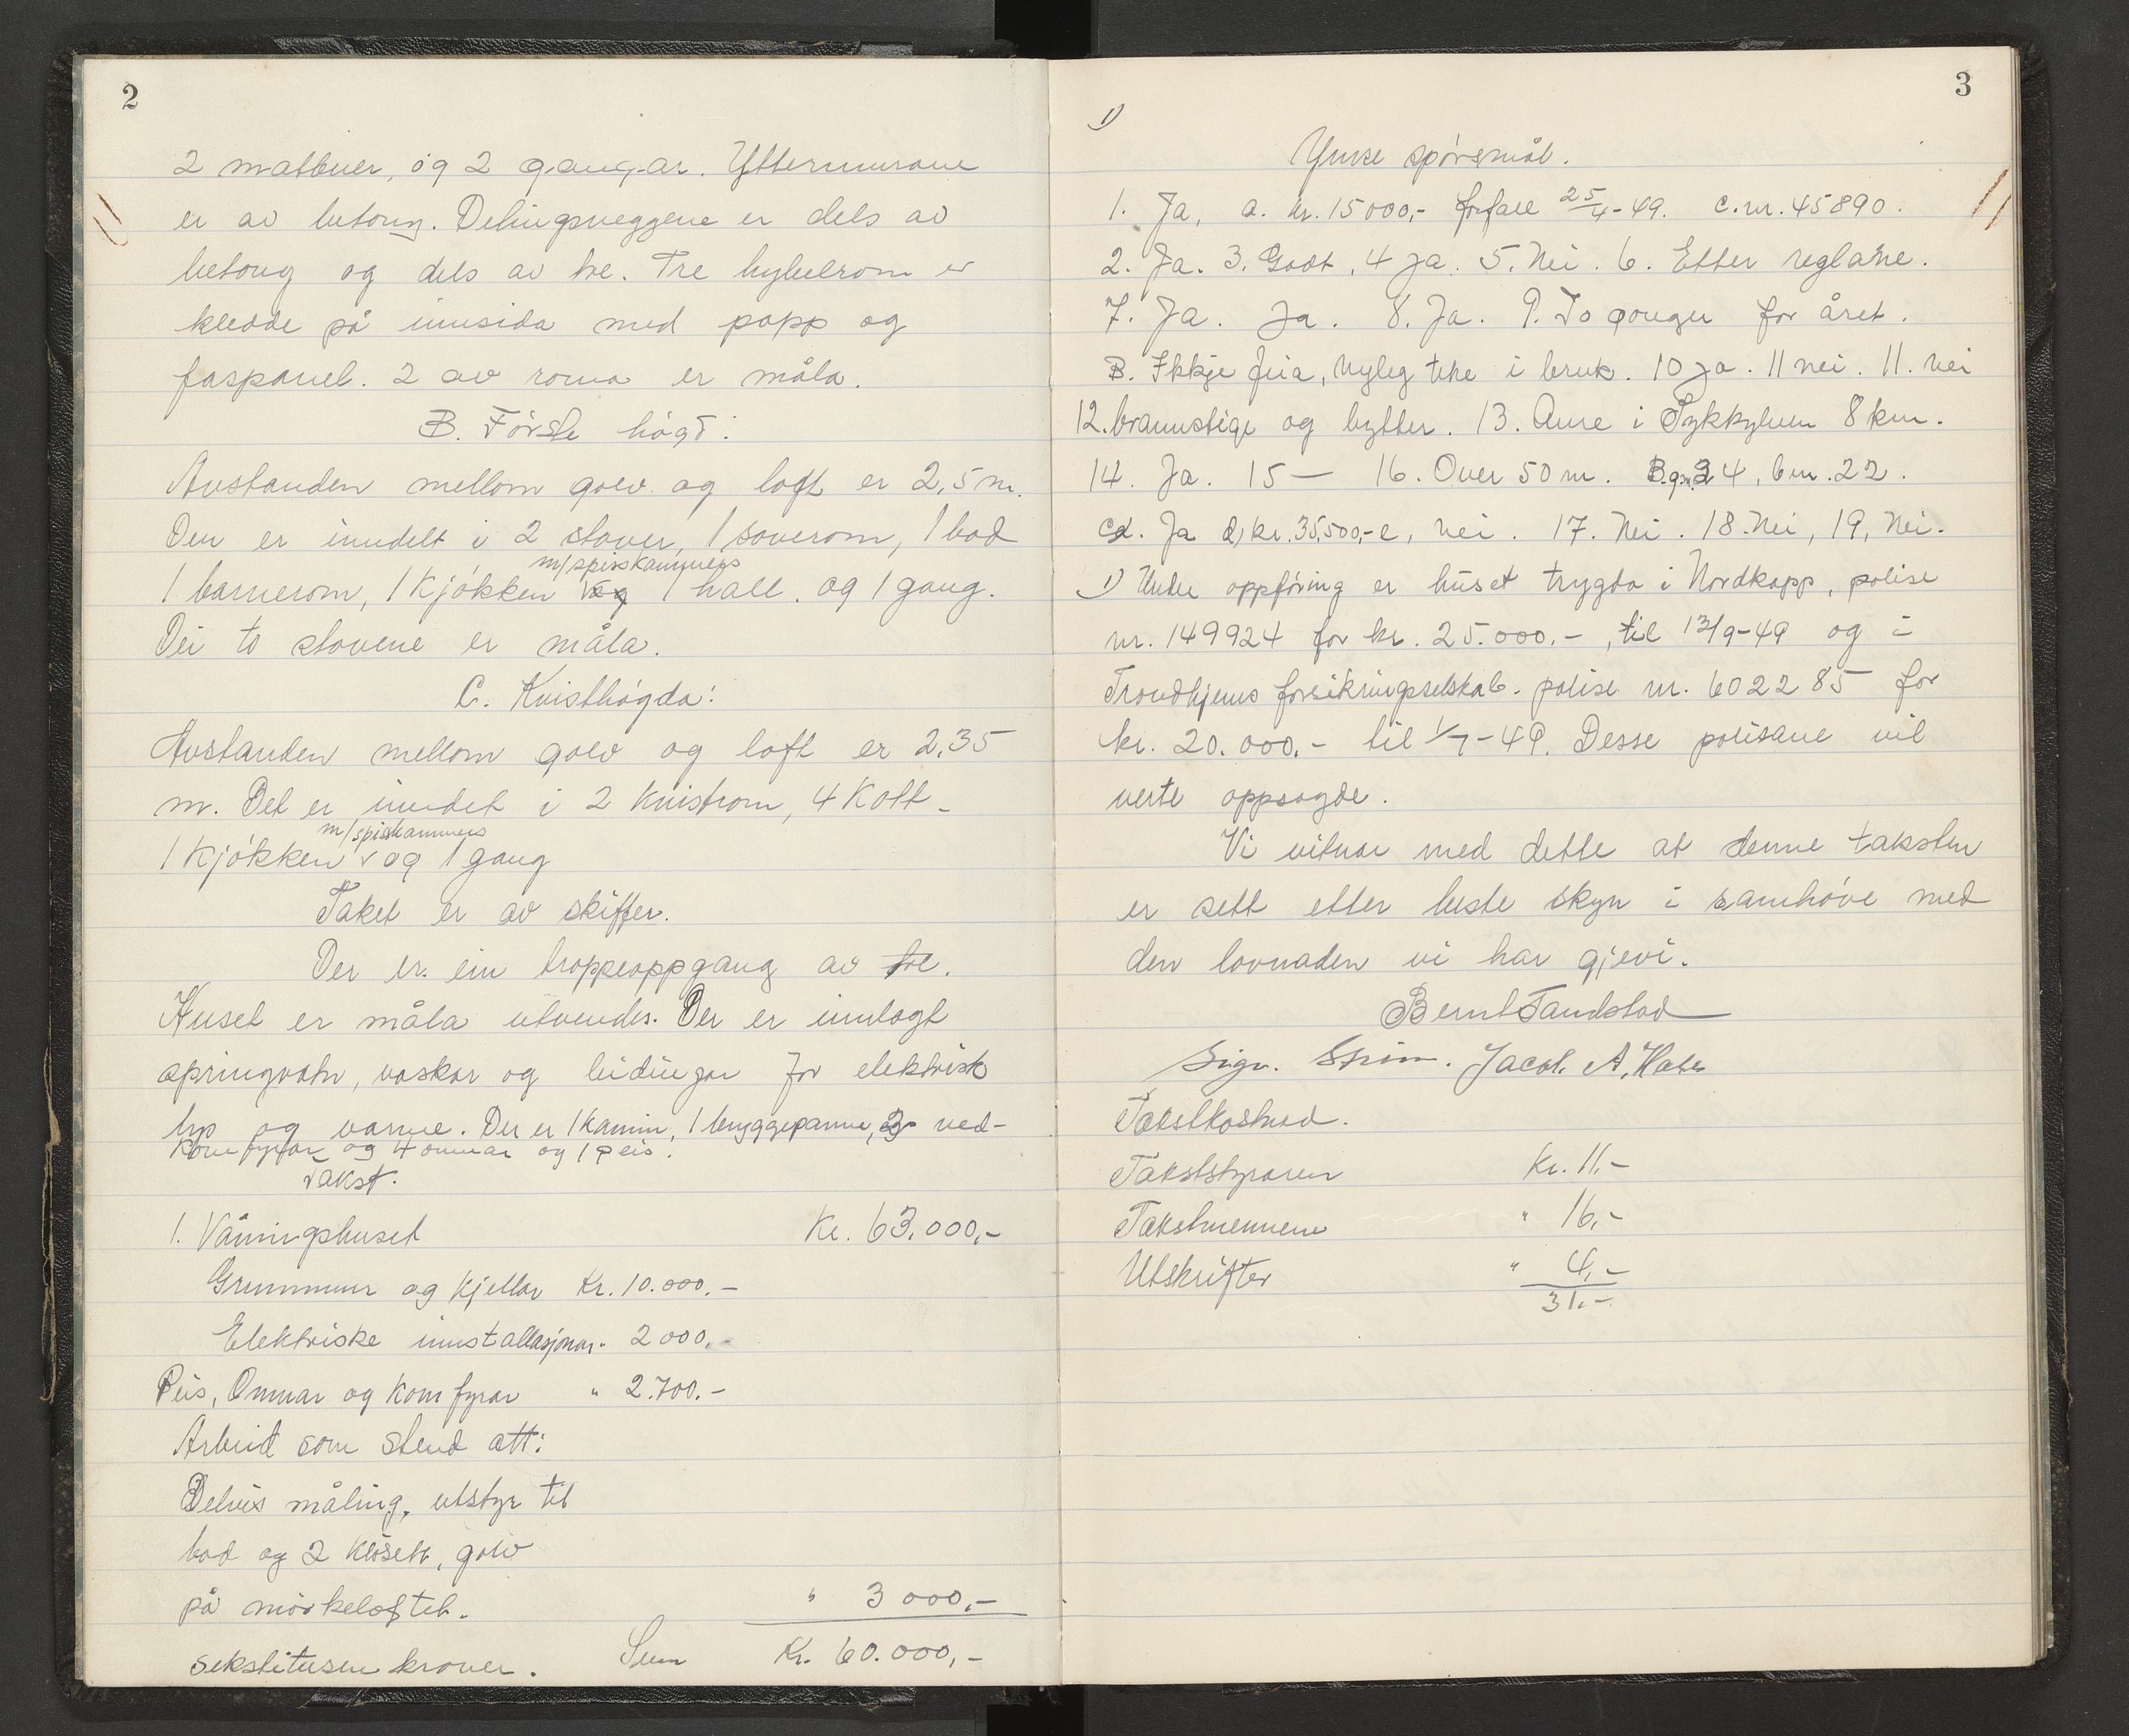 2
2 matbuer, og 2 gangar. Yttermurane
er av betong. Delingsveggene er dels av
betong og dels av tre. Tre hybelrom er
kledde på innsida med papp og
faspanel. 2 av roma er måla.
B. Første høgd:
Avstanden mellom golv og loft er 2,5 m.
Den er inndelt i 2 stover, 1 soverom, 1 bad
m/spisskammers
1 barnerom, 1 kjøkken og 1 hall. og 1 gang.
Dei to stovene er måla.
C. Kvisthøgda:
Avstanden mellom golv og loft er 2,35
m. Det er inndet i 2 kvistrom, 4 Kott-
m/spisskammers
1 kjøkken v og 1 gang
Taket er av skiffer.
Der er ein troppeoppgang av tre.
Huset er måla utvendes. Der er innlagt
springvatn, vaskar og leidingar for elektrisk
lys og varme. Der er 1 kamin, 1 bryggepanne, 2 ved-
komfyrar og 4 omnar og 1 peis.
Takst.
1. Våningshuset Kr. 63.000,-
Grunnmur og kjellar Kr. 10.000.-
Elektriske innstallasjonar - 2000,-
Peis, Omnar og komfyrar " 2.700.-
Arbeid som stend att:
Delvis måling, utstyr til
bad og 2 klosett, golv
på mørkeloftet. " 3 000,-
sekstitusen kroner. Sum Kr. 60.000,-
3
1)
Ymse spørsmål.
1. Ja, a. kr. 15000,- forfall 25/4-49. C.nr. 45890.
2. Ja. 3. Godt, 4 ja. 5. Nei. 6. Etter reglane.
7. Ja. Ja. 8. Ja. 9. To gonger for året.
B. Ikkje feia, nyleg teke i bruk. 10 ja. 11 nei. 11. nei
12. brannstige og bytter. 13. Aure i Sykkylven 8 km.
14. Ja. 15 — 16. Over 50 m. B. g.nr. 24, bnr. 22.
cd. Ja d, kr. 35,500,- e, nei. 17. Nei. 18. Nei, 19, Nei.
1) Under oppføring er huset trygda i Nordkapp, polise
nr. 149924 for kr. 25.000.-, til 13/9-49 og i
Trondhjems forsikringsselskab. polise nr. 602285 for
kr. 20.000.- til 1/7-49. Desse polisane vil
verte oppsagde.
Vi vitnar med dette at denne taksten
er sett etter beste skyn i samhøve med
den lovnaden vi har gjevi.
Bernt Tandstad
Sign. Strøm. Jacob A.
Takstkostnad.
Takststyraren Kr. 11,-
Takstmennene " 16,-
Utskrifter " 4,-
31.-